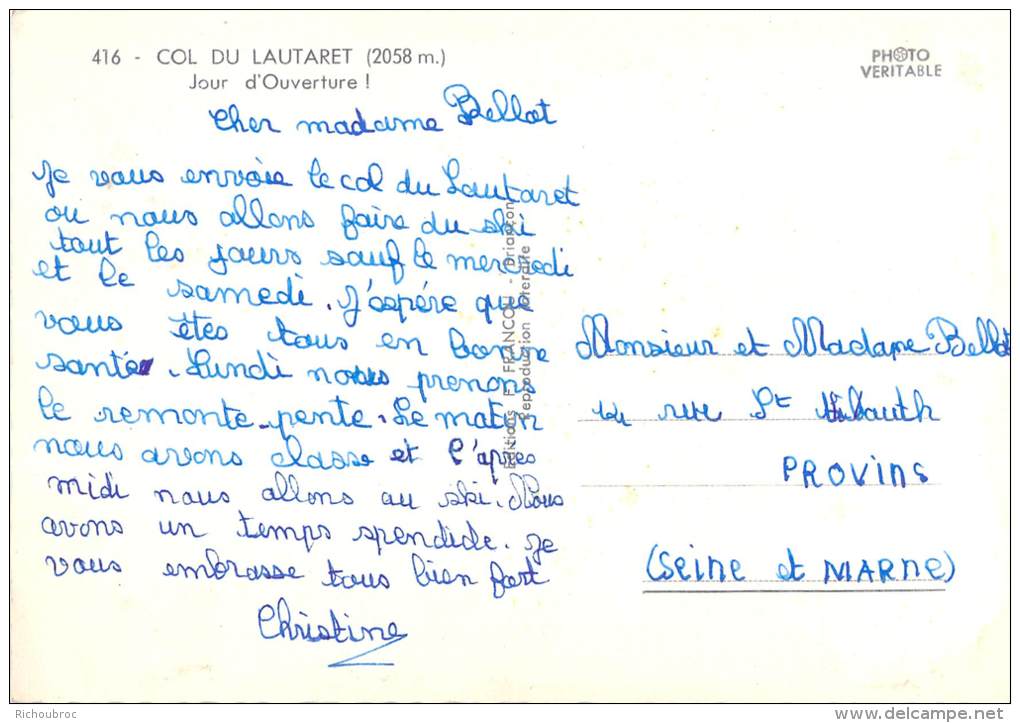 416 - COL DU LAUTARET (2058 m.)
Jour d'Ouverture !
PHOTO
VERITABLE
Cher madame Bellot
Je vous envoie le col du Lautaret
ou nous allons faire du ski
tout les jours sauf le mercredi
et le samedi. J'espére que
vous êtes tous en bonne
santé. Lundi nous prenons
le remonte-pente. Le matin
nous avons classe et l'après
midi nous allons au ski. Nous
avons un temps spendide. Je
vous embrasse tous bien fort
Christine
Editions F. FRANCOU - Briançon
Reproduction Interdite
Monsieur et Madame Bellot
rue St
PROVINS
(Seine et MARNE)
Richoubroc
www.delcampe.net